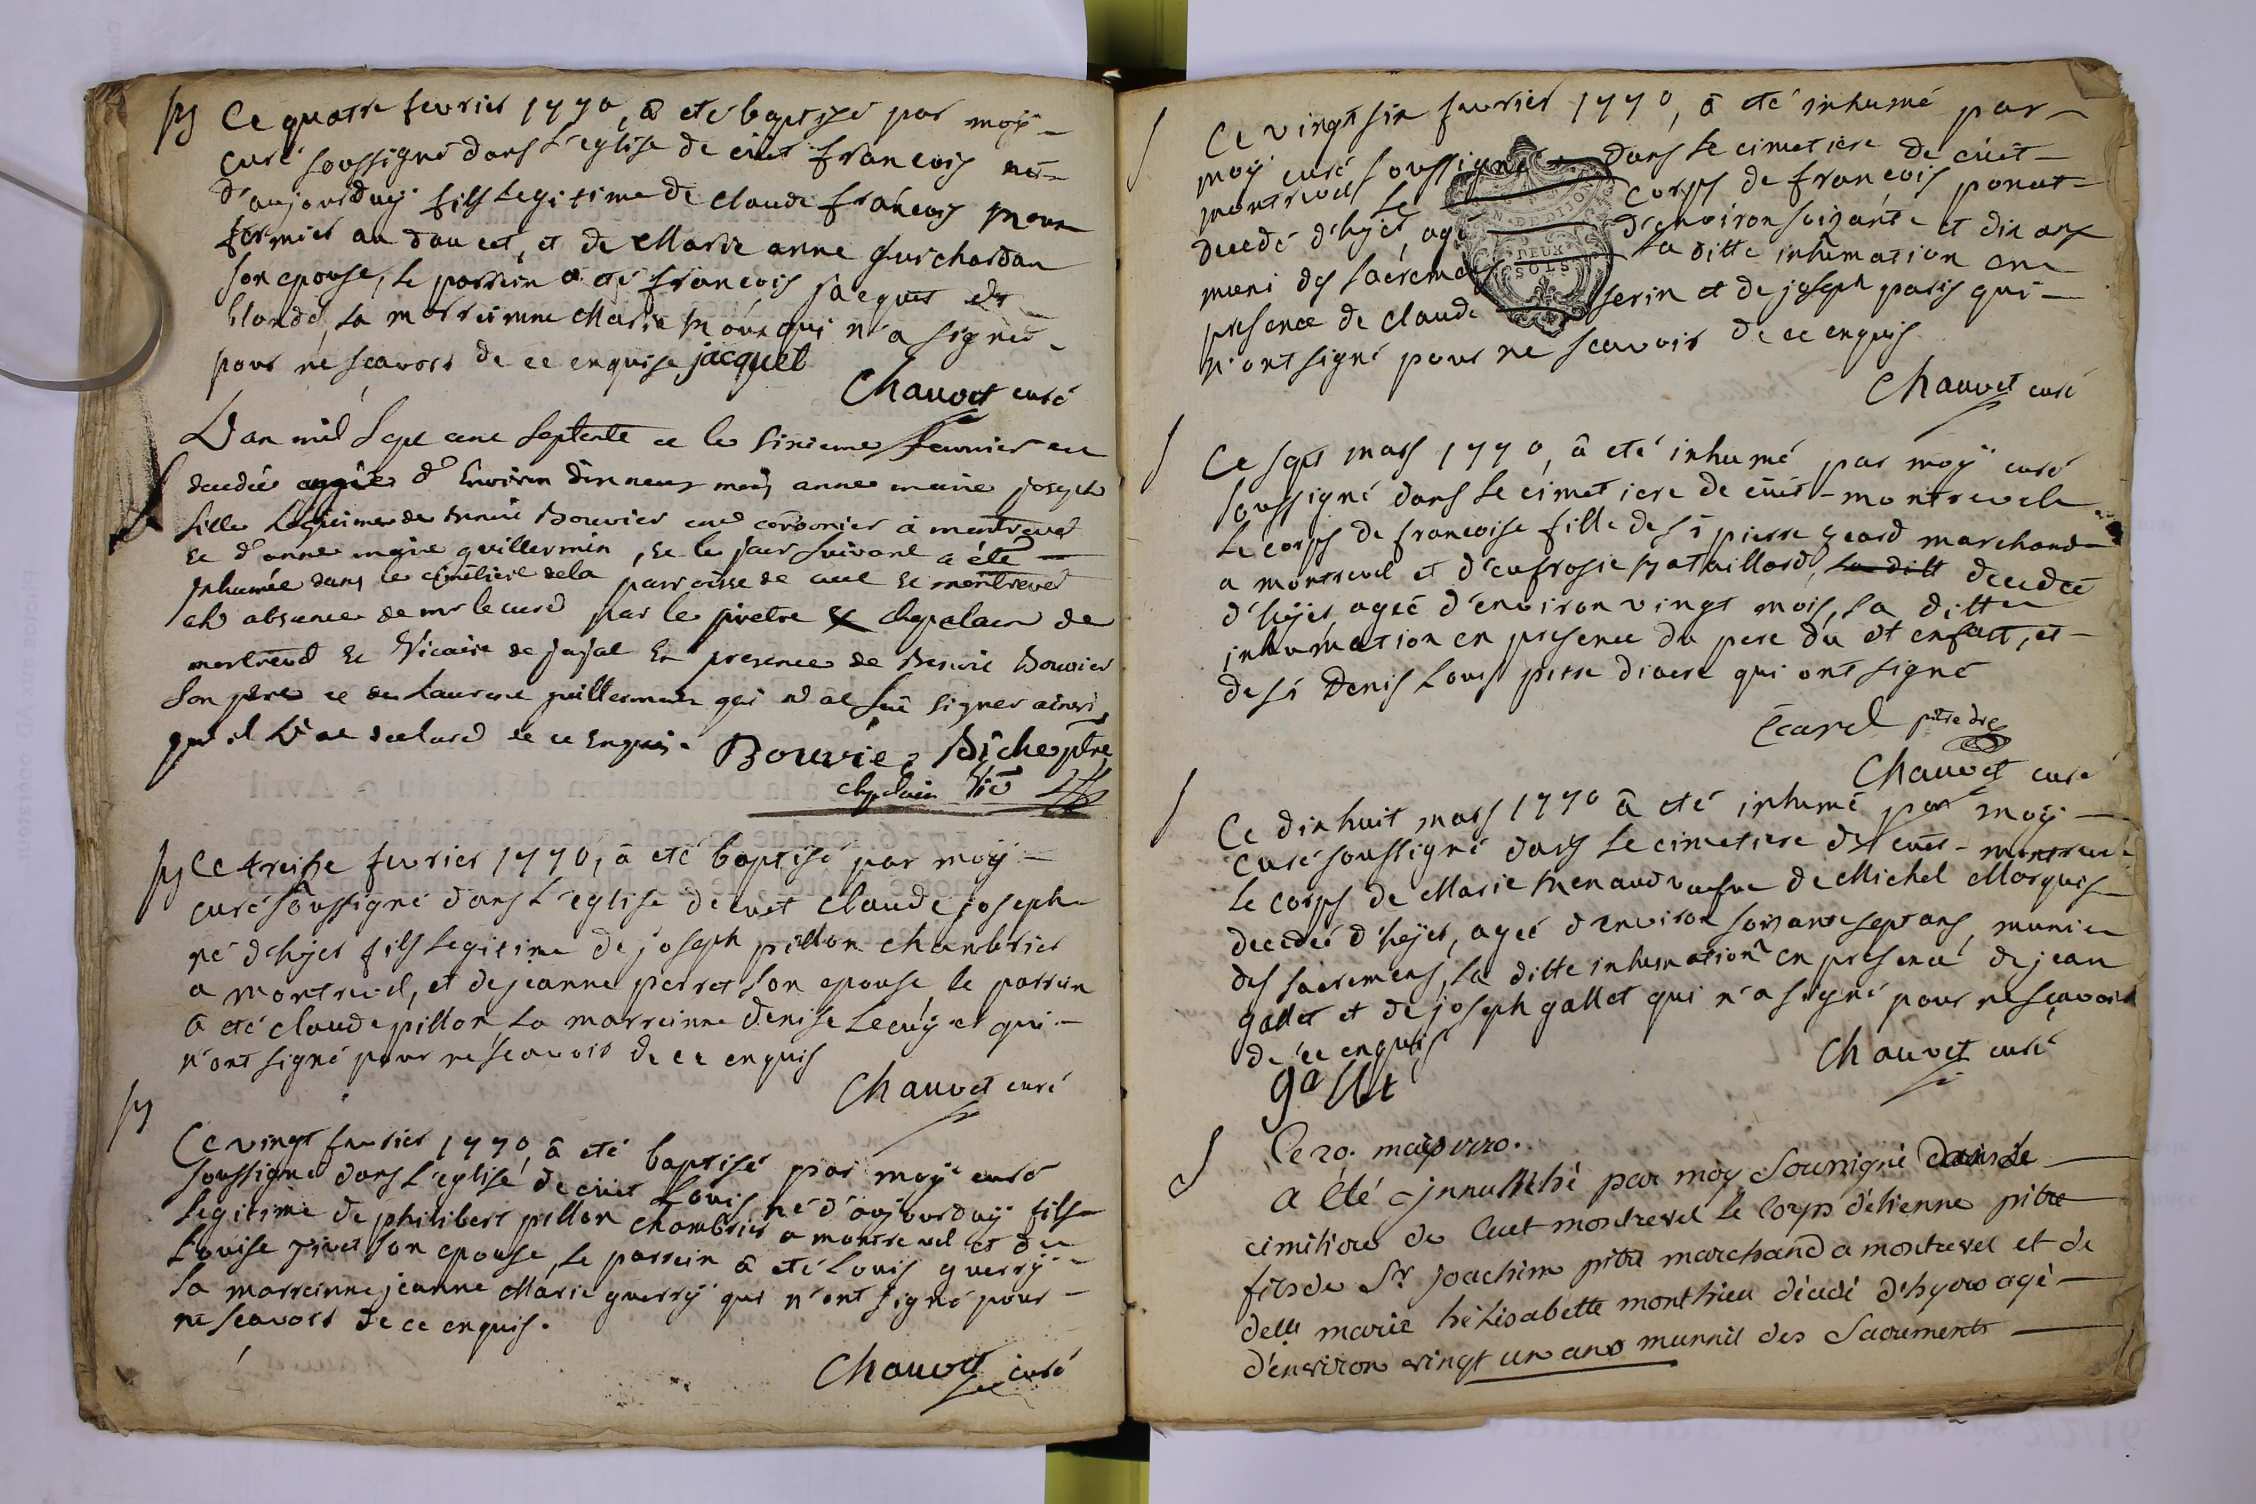 Ce quatre fevrier 1770, a eté baptisé par moÿ
curé soussigné dans l'eglise de cuet francois né
d'aujourduÿ fils legitime de claude francois
fermier au doucet, et de Marie anne Guichardan
son epouse, le parrein a eté francois jacquet de
la marreinne Marie qui n'a signé
pour ne scavoir de ce enquise jacquet
Chauvet curé
L'an mil sept cent septente et le sixieme fevrier est
decedée aggée d'Environ dixneuf mois anne marie joseph
fille legitime de benoit Bouvier cordonier à montrevel
et d'anne marie guillermin, et le jour suivant a été
Inhumée dans le cimetiere de la parroisse de cuet et montrevel
en absance de mr le curé par le pretre chapelain de
montrevel et Vicaire de jajat En presence de Benoit Bouvier
son père et de Laurent guillermin qui n'a sçu signer ainsi
qu'il L'a declaré de ce Enquis. Bouvie, Biche ptre
chaplain Vic
Ce treize fevrier 1770, a eté baptisé par moÿ
curé soussigné dans l'eglise de cuet claude joseph
né d'hyer fils legitime de joseph pillon chambrier
a montrevel, et de jeanne perret son epouse le parrein
a eté claude pillon la marreinne denise Lecuÿ et qui
n'ont signé pour ne scavoir de ce enquis
Chauvet curé
Ce vingt fevrier 1770, a eté baptisé par moÿ curé
soussigné dans l'eglise de cuet Louis né d'aujourduÿ fils
legitime de philibert pillon chambrier a montrevel et de
Louise pivet son epouse, le parrein a eté Louis guerrÿ
la marreinne jeanne Marie guerrÿ qui n'ont signé pour
ne scavoir de ce enquis.
Chauvet curé
Ce vingt six fevrier 1770, a eté inhumé par
moÿ curé soussigné dans le cimetiere de cuet
montrevel le corps de francois ponat
decedé d'hyer, agé d'environ soixante et dix ans
muni des sacremens la ditte inhumation en
presence de claude serin et de joseph paris qui
n'ont signé pour ne scavoir de ce enquis
Chauvet curé
DEUX
SOLS
Ce sept mars 1770, a eté inhumé par moÿ curé
soussigné dans le cimetiere de cuet-montrevel
le corps de francoise fille de sr pierre Ecard marchand
a montrevel et d'eufrosie pataillard, la ditt decedée
d'hyer, ageé d'environ vingt mois, la ditte
inhumation en presence du pere du dt enfant, et
de sr Denis Louis pitre diacre qui ont signé
Ecard pitre dre
Chauvet curé
Ce dixhuit mars 1770 a eté inhumé par moÿ
curé soussigné dans le cimetiere de cuet-montrevel
le corps de Marie menaud veufve de Michel Marquis
decedeé d'hyer, ageé d'environ soixante sept ans, munie
des sacremens, la ditte inhumation en presence de jean
gallet et de joseph gallet qui n'a signé pour ne scavoir
de ce enquis
Chauvet curé
gallet
Ce 20. mars 1770.
a été Innuméhé par moy soussigné dans le
cimitiere de Cuet montrevel le corps d'étienne pitre
fils de Sr joachim pitre marchand a montrevel et de
delle marie hélisabette monthieu décédé d'hyer agé
d'environ vingt un ans munnit des Sacrements